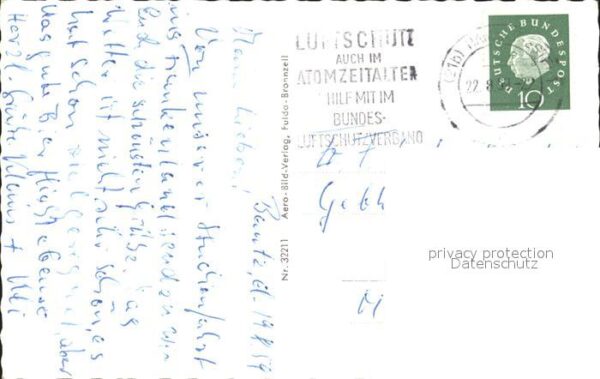 Banz, d. 19.8.59
Meine Lieben!
Von unserer Studienfahrt
ins Frankenland senden wir
Euch die schönsten Grüße. Das
Wetter ist nicht sehr schön, es
hat schon viel geregnet, aber
das gute Bier fließt ebenso
Herzl. Grüße Klaus + Uli
Nr. 32211 Aero-Bild-Verlag, Fulda-Bronnzell
LUFTSCHUTZ
AUCH IM
ATOMZEITALTER
HILF MIT IM
BUNDES-
LUFTSCHUTZVERBAND
(21b)
22.8.59
DEUTSCHE BUNDESPOST
10
Gebh
privacy protection
Datenschutz